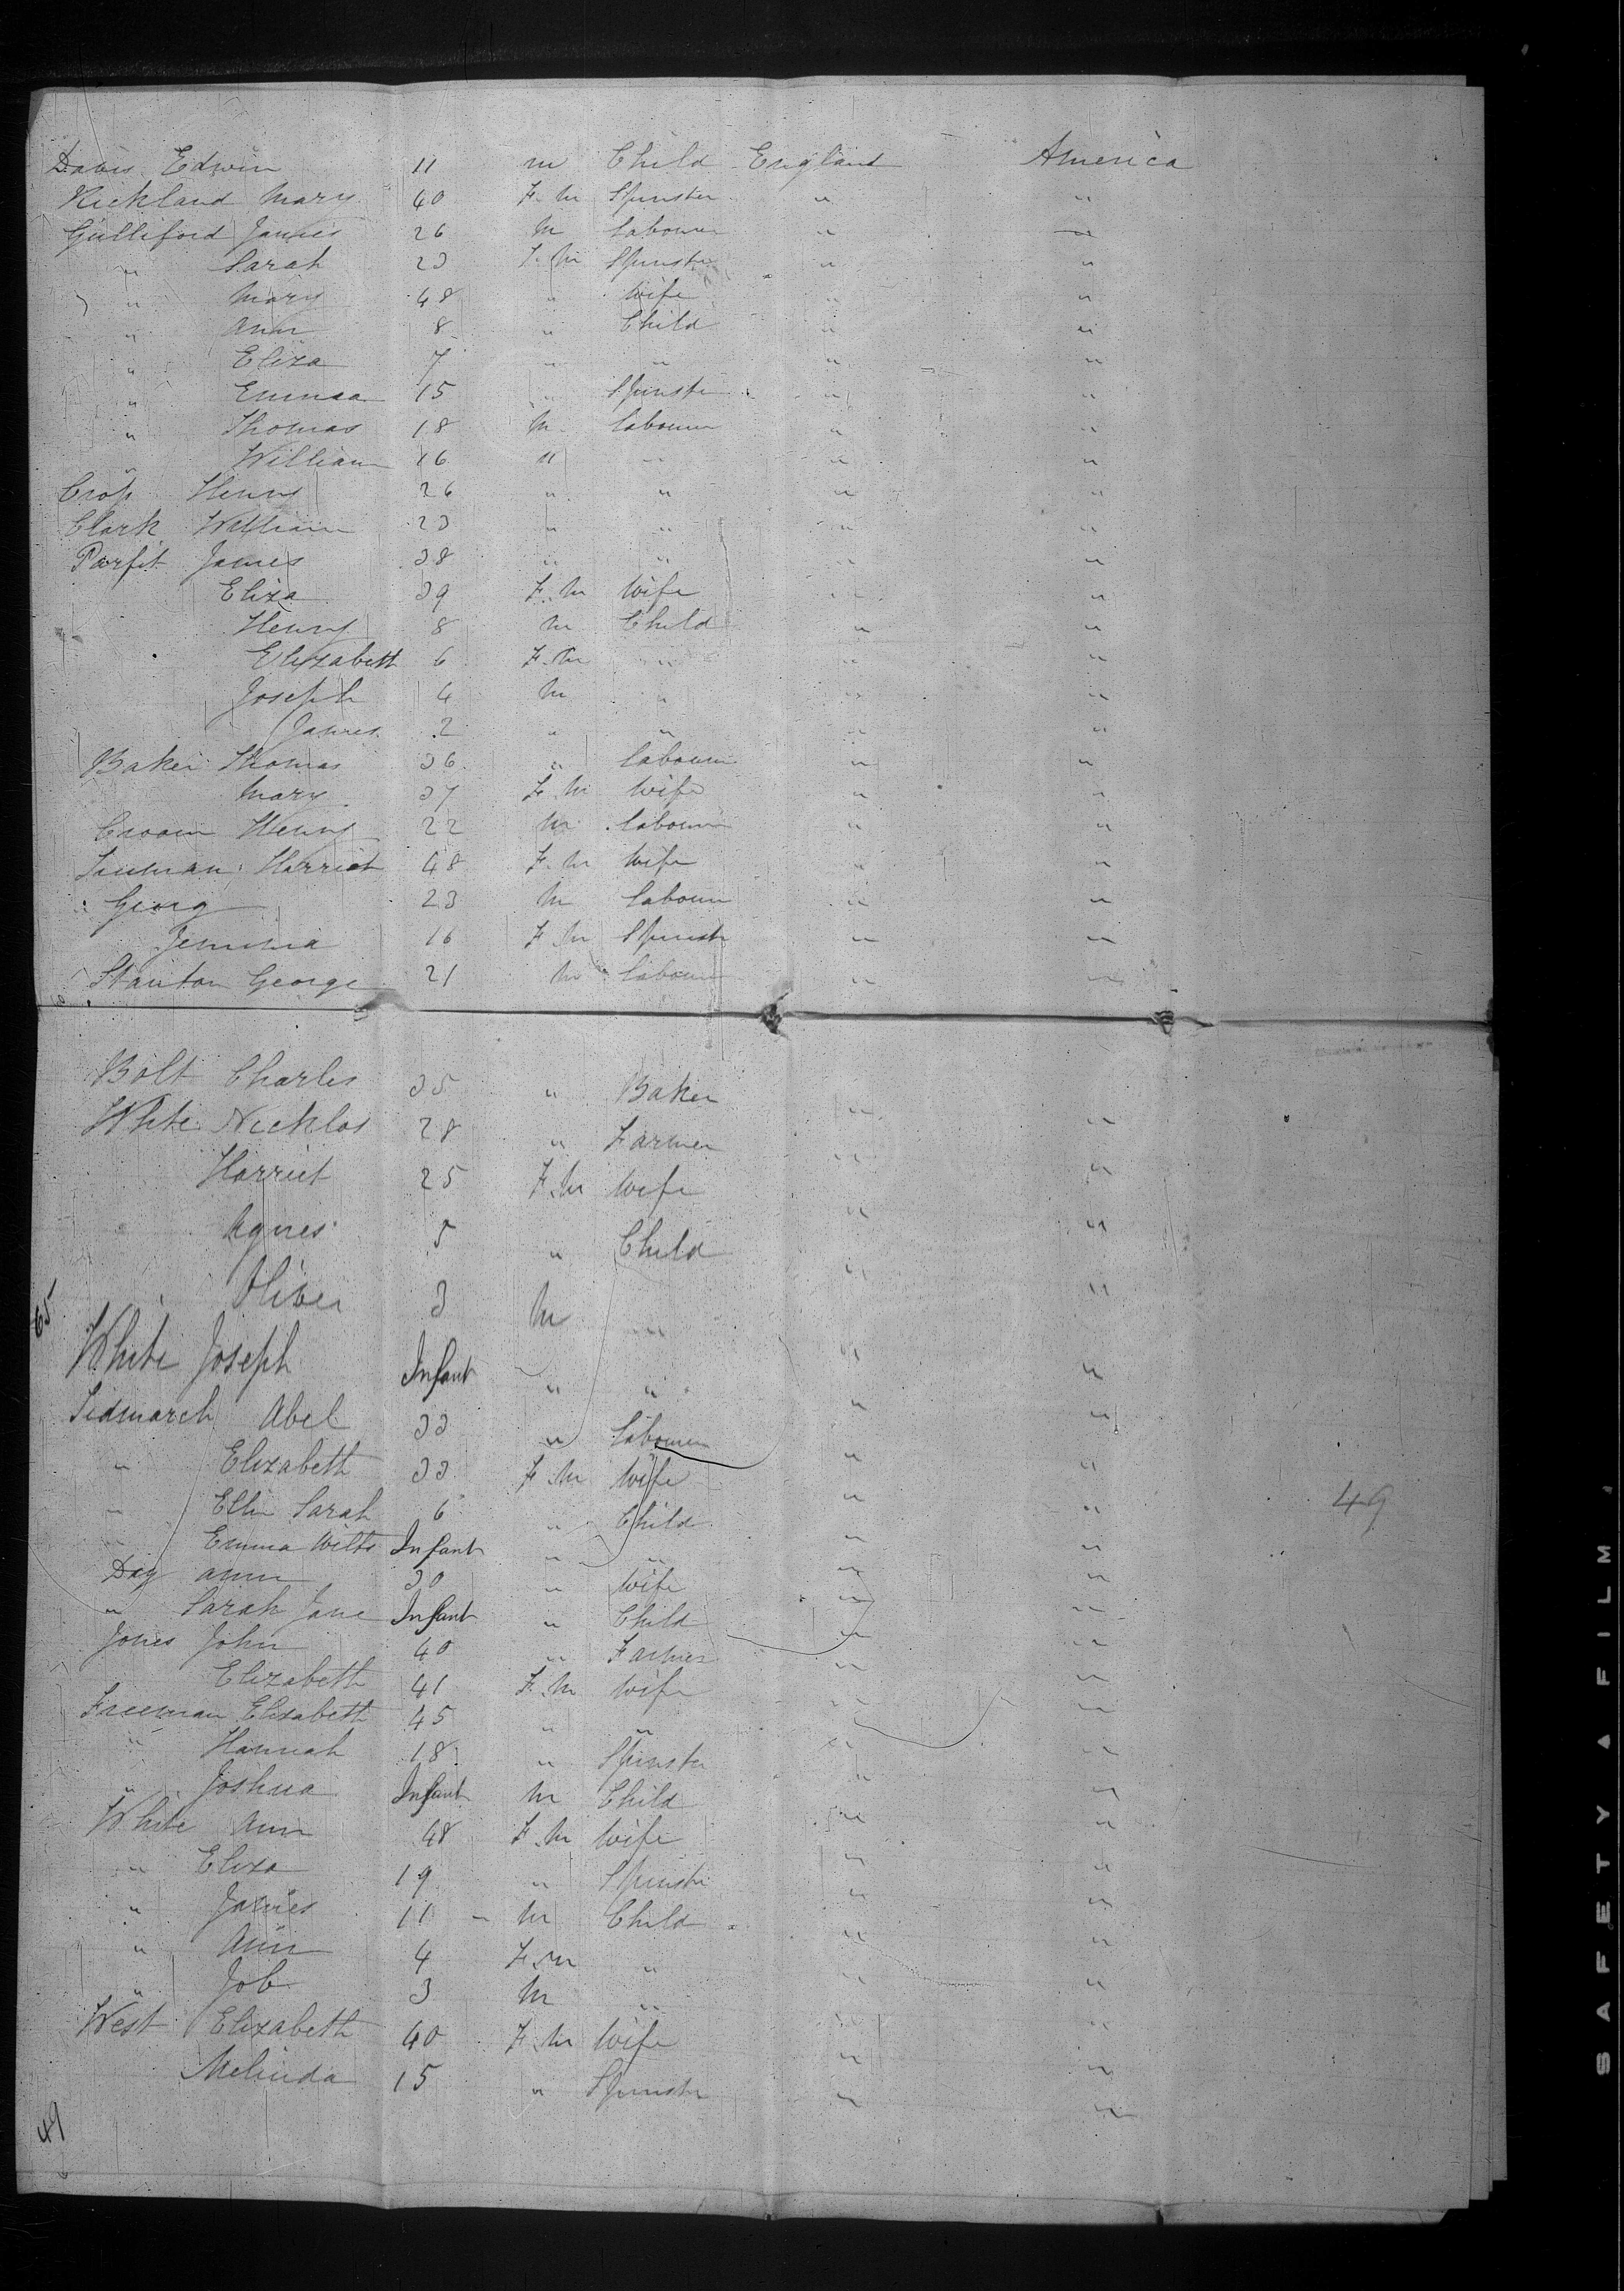 Davis Edwin 11 m Child England America
Kickland Mary 40 F.m Spinster " "
Gulliford James 26 m labourer " "
" Sarah 23 F.m Spinster " "
" Mary 48 " Wife " "
" Ann 8 " Child " "
" Eliza 7 " " " "
" Emmaa 15 " Spinster " "
" Thomas 18 m labourer " "
William 16 " " " "
Crop Henry 26 " " " "
Clark William 23 " " " "
Parfit James 38 " " " "
Eliza 39 F.m Wife " "
Henry 8 m Child " "
Elizabeth 6 F.m " " "
Joseph 4 m " " "
James 2 " " " "
Baker Thomas 36 " labourer " "
Mary 37 F.m Wife " "
Croom Henry 22 m labourer " "
Harriet 48 F.m Wife " "
" Georg 23 m labour " "
Jemima 16 F.m Spinstr " "
Stanton George 21 m labourer " "
Bolt Charles 35 " Baker " "
White Nicklos 28 " Farmer " "
Harriet 25 F.m Wife " "
Agnes 5 " Child " "
65
Oliver 3 m " " "
White Joseph Infant " " " "
Tidmarch Abel 33 " labourer " "
" Elizabeth 33 F.m Wife " "
" Ellin Sarah 6 " Child " " 49
" Emma Wilts Infant " " " "
Day Ann 30 " Wife " "
" Sarah Jane Infant " Child " "
Jones John 40 " Farmer " "
Elizabeth 41 F.m Wife " "
Freeman Elizabeth 45 " " " "
" Hannah 18 " Spinster " "
" Joshua Infant m Child " "
White Ann 48 F.m Wife " "
" Eliza 19 " Spinster " "
" James 11 m Child " "
" Ann 4 F.m " " "
" Job 3 m " " "
West Elizabeth 40 F.m Wife " "
Melinda 15 " Spinster " "
49
SAFETY ▲ FILM